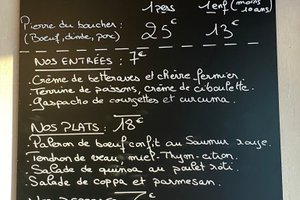 1 pers 1 enf (moins 10 ans)
Pierre du boucher : 25€ 13€
(Boeuf, dinde, porc)
NOS ENTRÉES : 7€
. Crème de betteraves et chèvre fermier
. Terrine de poissons, crème de ciboulette
. Gaspacho de courgettes et curcuma
NOS PLATS : 18€
. Paleron de boeuf confit au Saumur rouge.
. Tendron de veau miel-Thym-citron.
. Salade de quinoa au poulet roti
. Salade de coppa et parmesan.